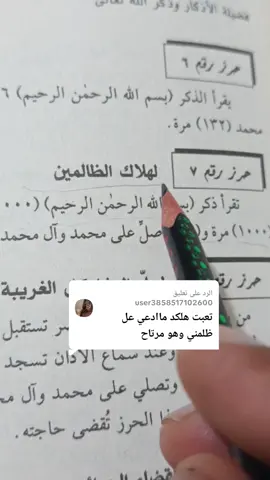 فضيلة الأذكار وذكر الله تعالى
حرز رقم ٦
يقرأ الذكر (بسم الله الرحمٰن الرحيم) ٦
محمد (١٣٢) مرة.
حرز رقم ٧
لهلاك الظالمين
تقرأ ذكر (بسم الله الرحمٰن الرحيم) (٠٠٠
(١٠٠٠) مرة و صلِّ على محمد وآل محمد
حرز رقم
الغريبة
الرد على تعليق
user3858517102600
تعبت هلكد ماادعي عل
ظلمني وهو مرتاح
من
تستقبل
وعند سماع الأذان تسجد
وتصلي على محمد وآل مح
هذا الحرز تُقضى حاجته.